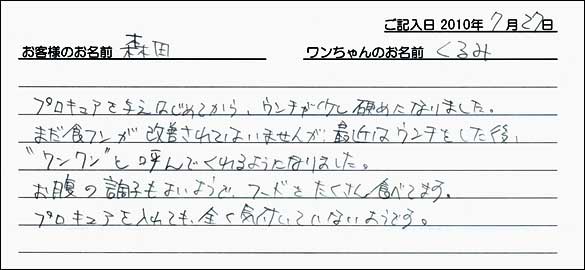 ご記入日 2010年 7月27日
お客様のお名前 森田 ワンちゃんのお名前 くるみ
プロキュアを与えはじめてから、ウンチが少し硬めになりました。
まだ食フンが改善されてはいませんが、最近はウンチをした後、
"ワンワン"と呼んでくれるようになりました。
お腹の調子もよいようで、フードをたくさん食べてます。
プロキュアを入れても、全く気付いていないようです。